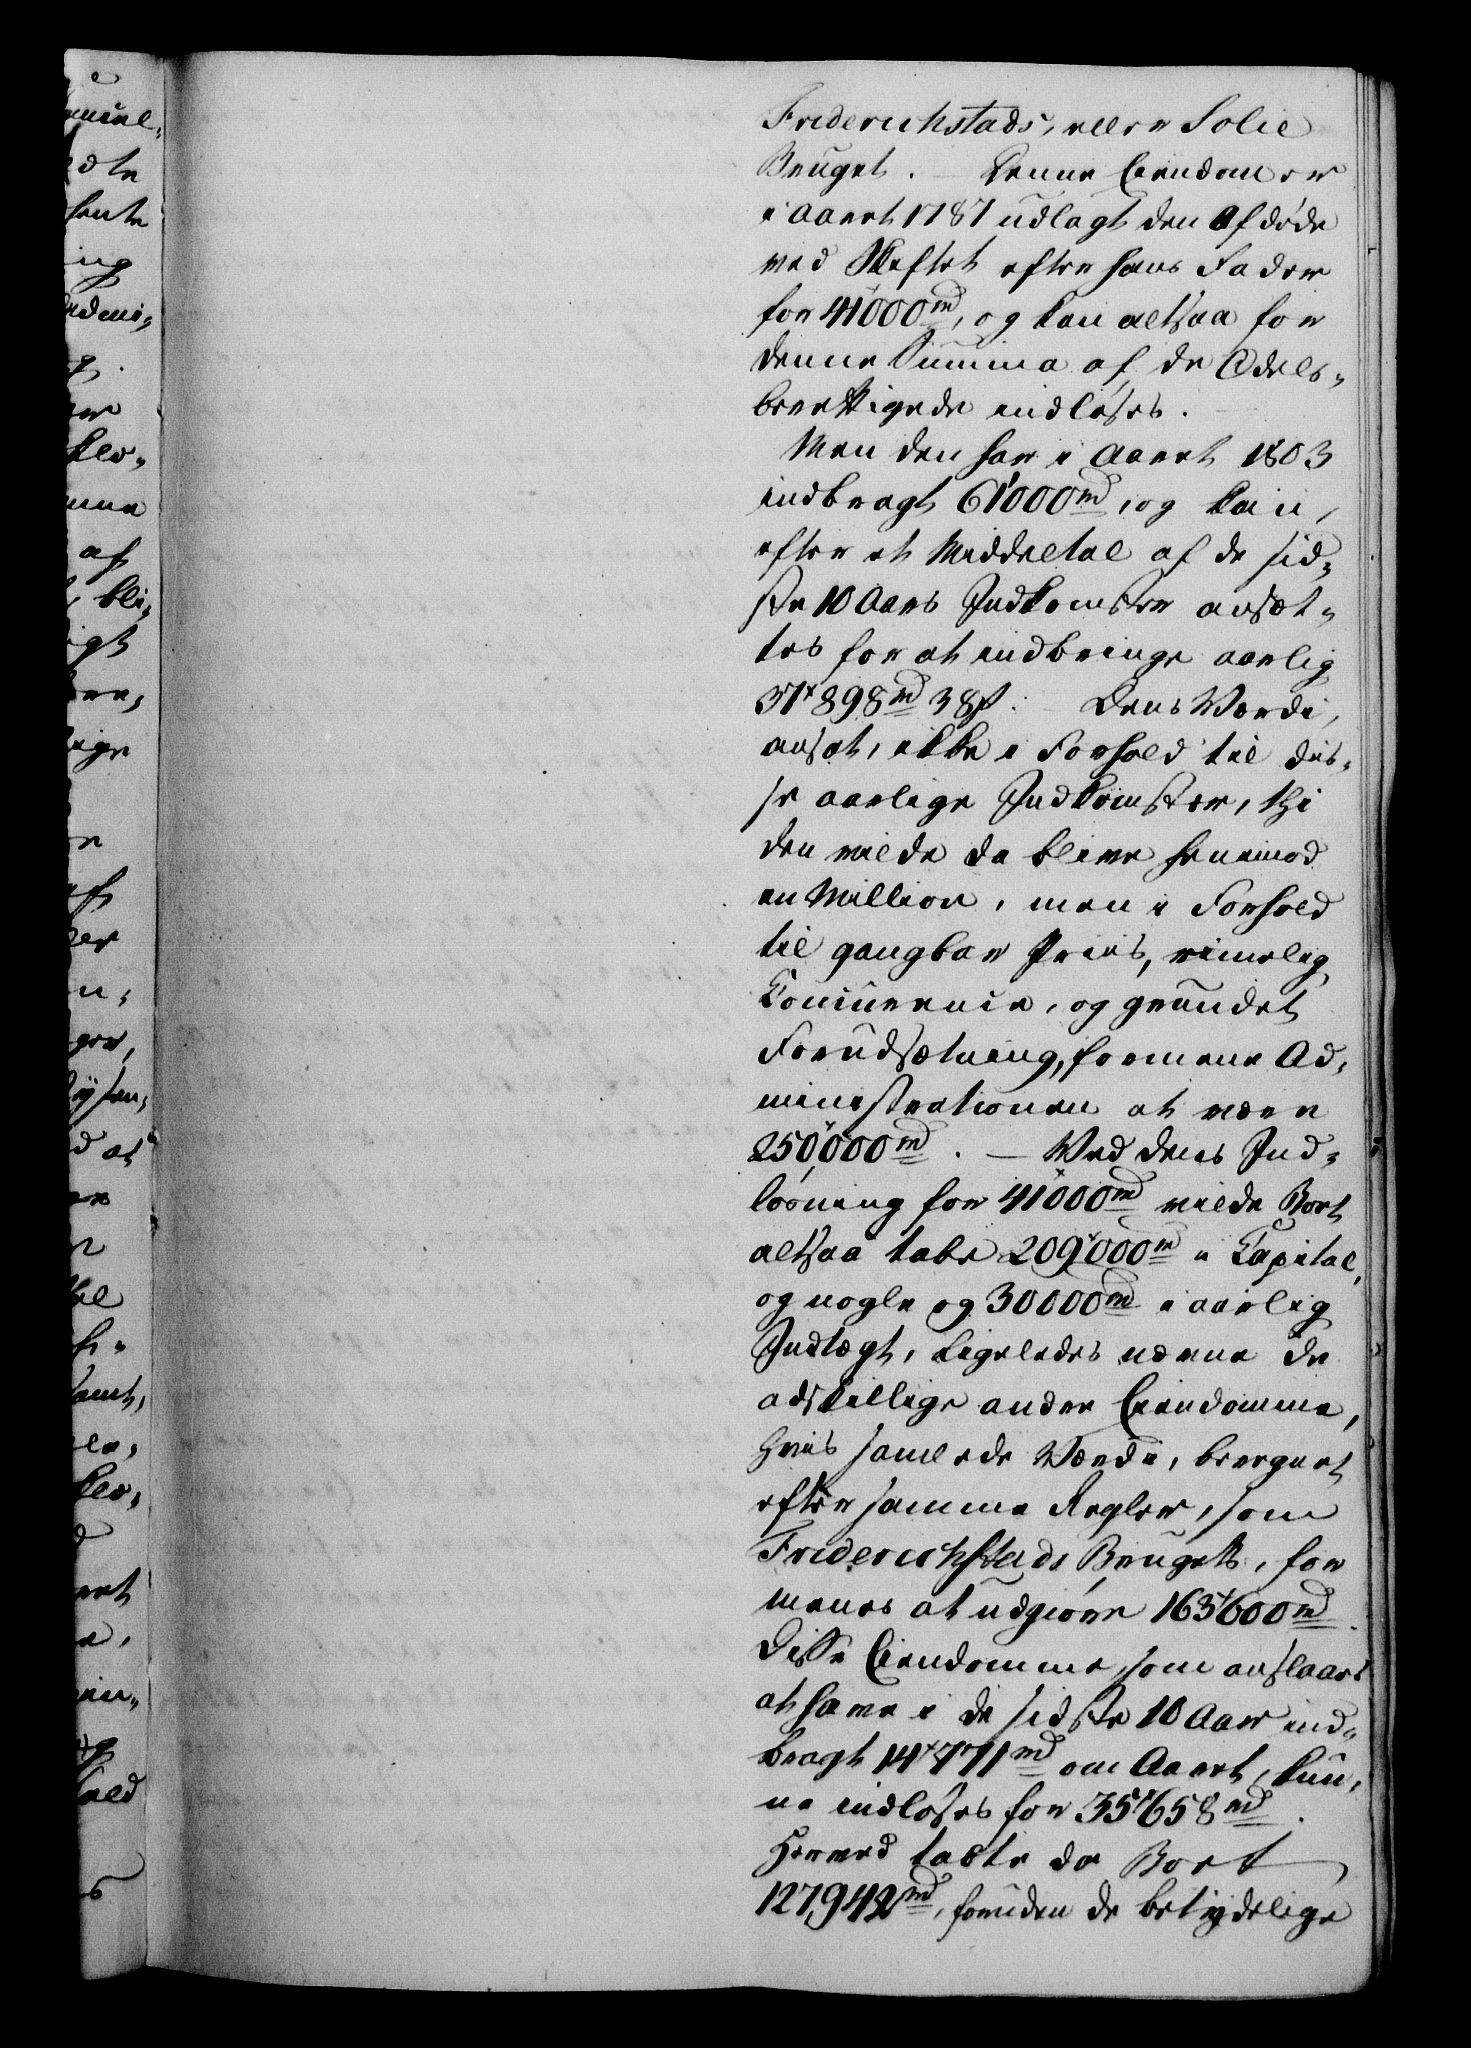 Friderichstads, eller Solie
Bruget. — Denne Eiendom er
i Aaret 1787 udlagt den Afdøde
ved Skiftet efter hans Fader
for 41000 rd, og kan altsaa for
denne Summa af de Odels-
berettigede indløses.
Men den har i Aaret 1803
indbragt 61000 rd, og kan,
efter et Middeltal af de sid-
ste 10 Aars Indkomster ansæt-
tes for at indbringe aarlig
37898 rd 38 s. — Dens Værdi,
ansat, ikke i Forhold til dis-
se aarlige Indkomster, thi
den vilde da blive henimod
en Million, men i Forhold
til gangbar Priis, rimelig
Concurence, og grundet
Forudsætning, formener Ad-
ministrationen at være
250,000 rd. — Ved dens Ind-
løsning for 41000 rd vilde Boet
altsaa tabe 209000 rd i Capital,
og nogle og 30000 rd i aarlig
Indtægt, Ligeledes nævne de
adskillige andre Eiendomme,
hvis samlede Værdi, beregnet
efter samme Regler, som
Friderichstads Brugets, for
menes at udgiøre 163600 rd.
Disse Eiendomme, som anslaaes
at have i de sidste 10 Aar ind-
bragt 14771 rd om Aaret, kun-
ne indløses for 35658 rd.
Herved tabte da Boet
127,942 rd, foruden de betydelige